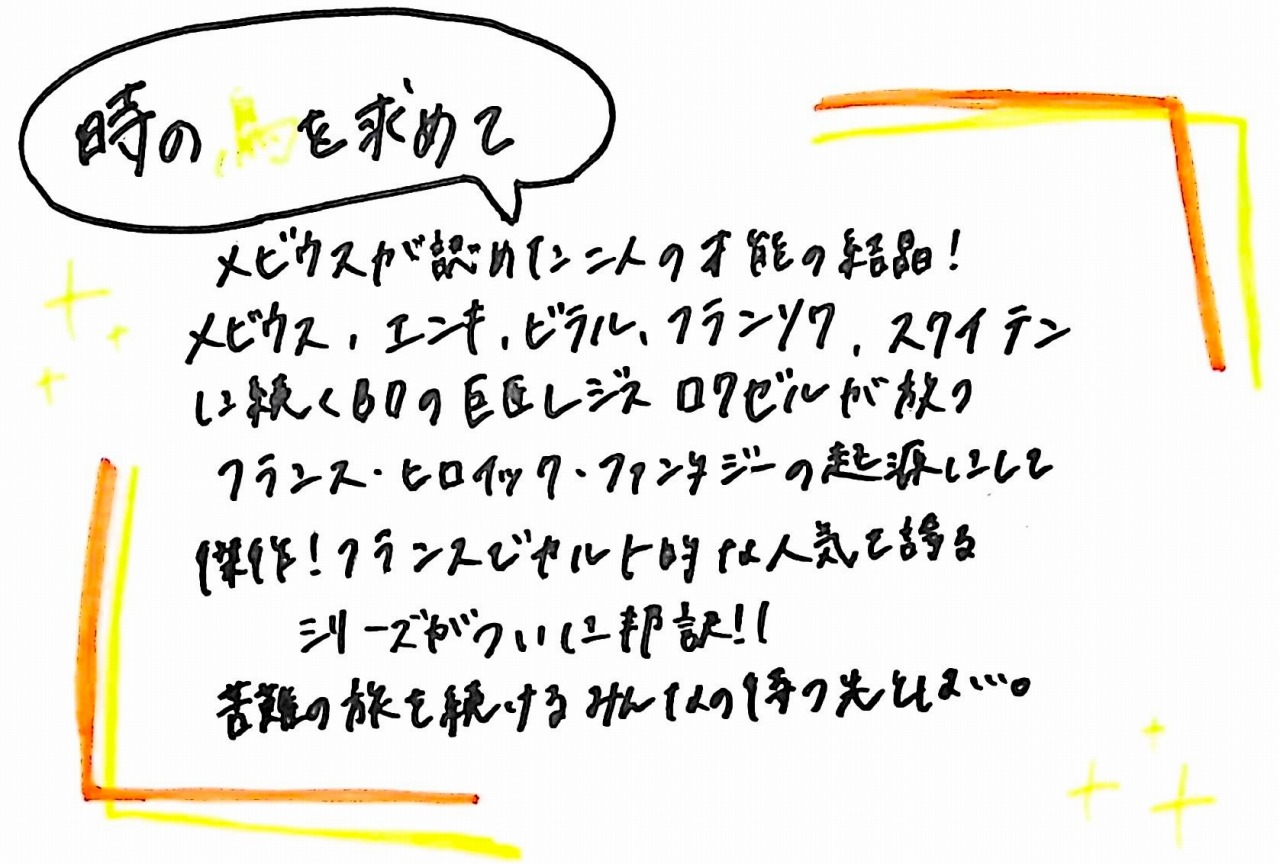 時の鳥を求めて
メビウスが認めた二人の才能の結晶!
メビウス、エンキ、ビラル、フランソワ、スクイテン
に続くBDの巨匠レジス ロワゼルが放つ
フランス・ヒロイック・ファンタジーの起源にして
傑作!フランスでカルト的な人気を誇る
シリーズがついに邦訳!!
苦難の旅を続けるみんなの待つ先とは…。